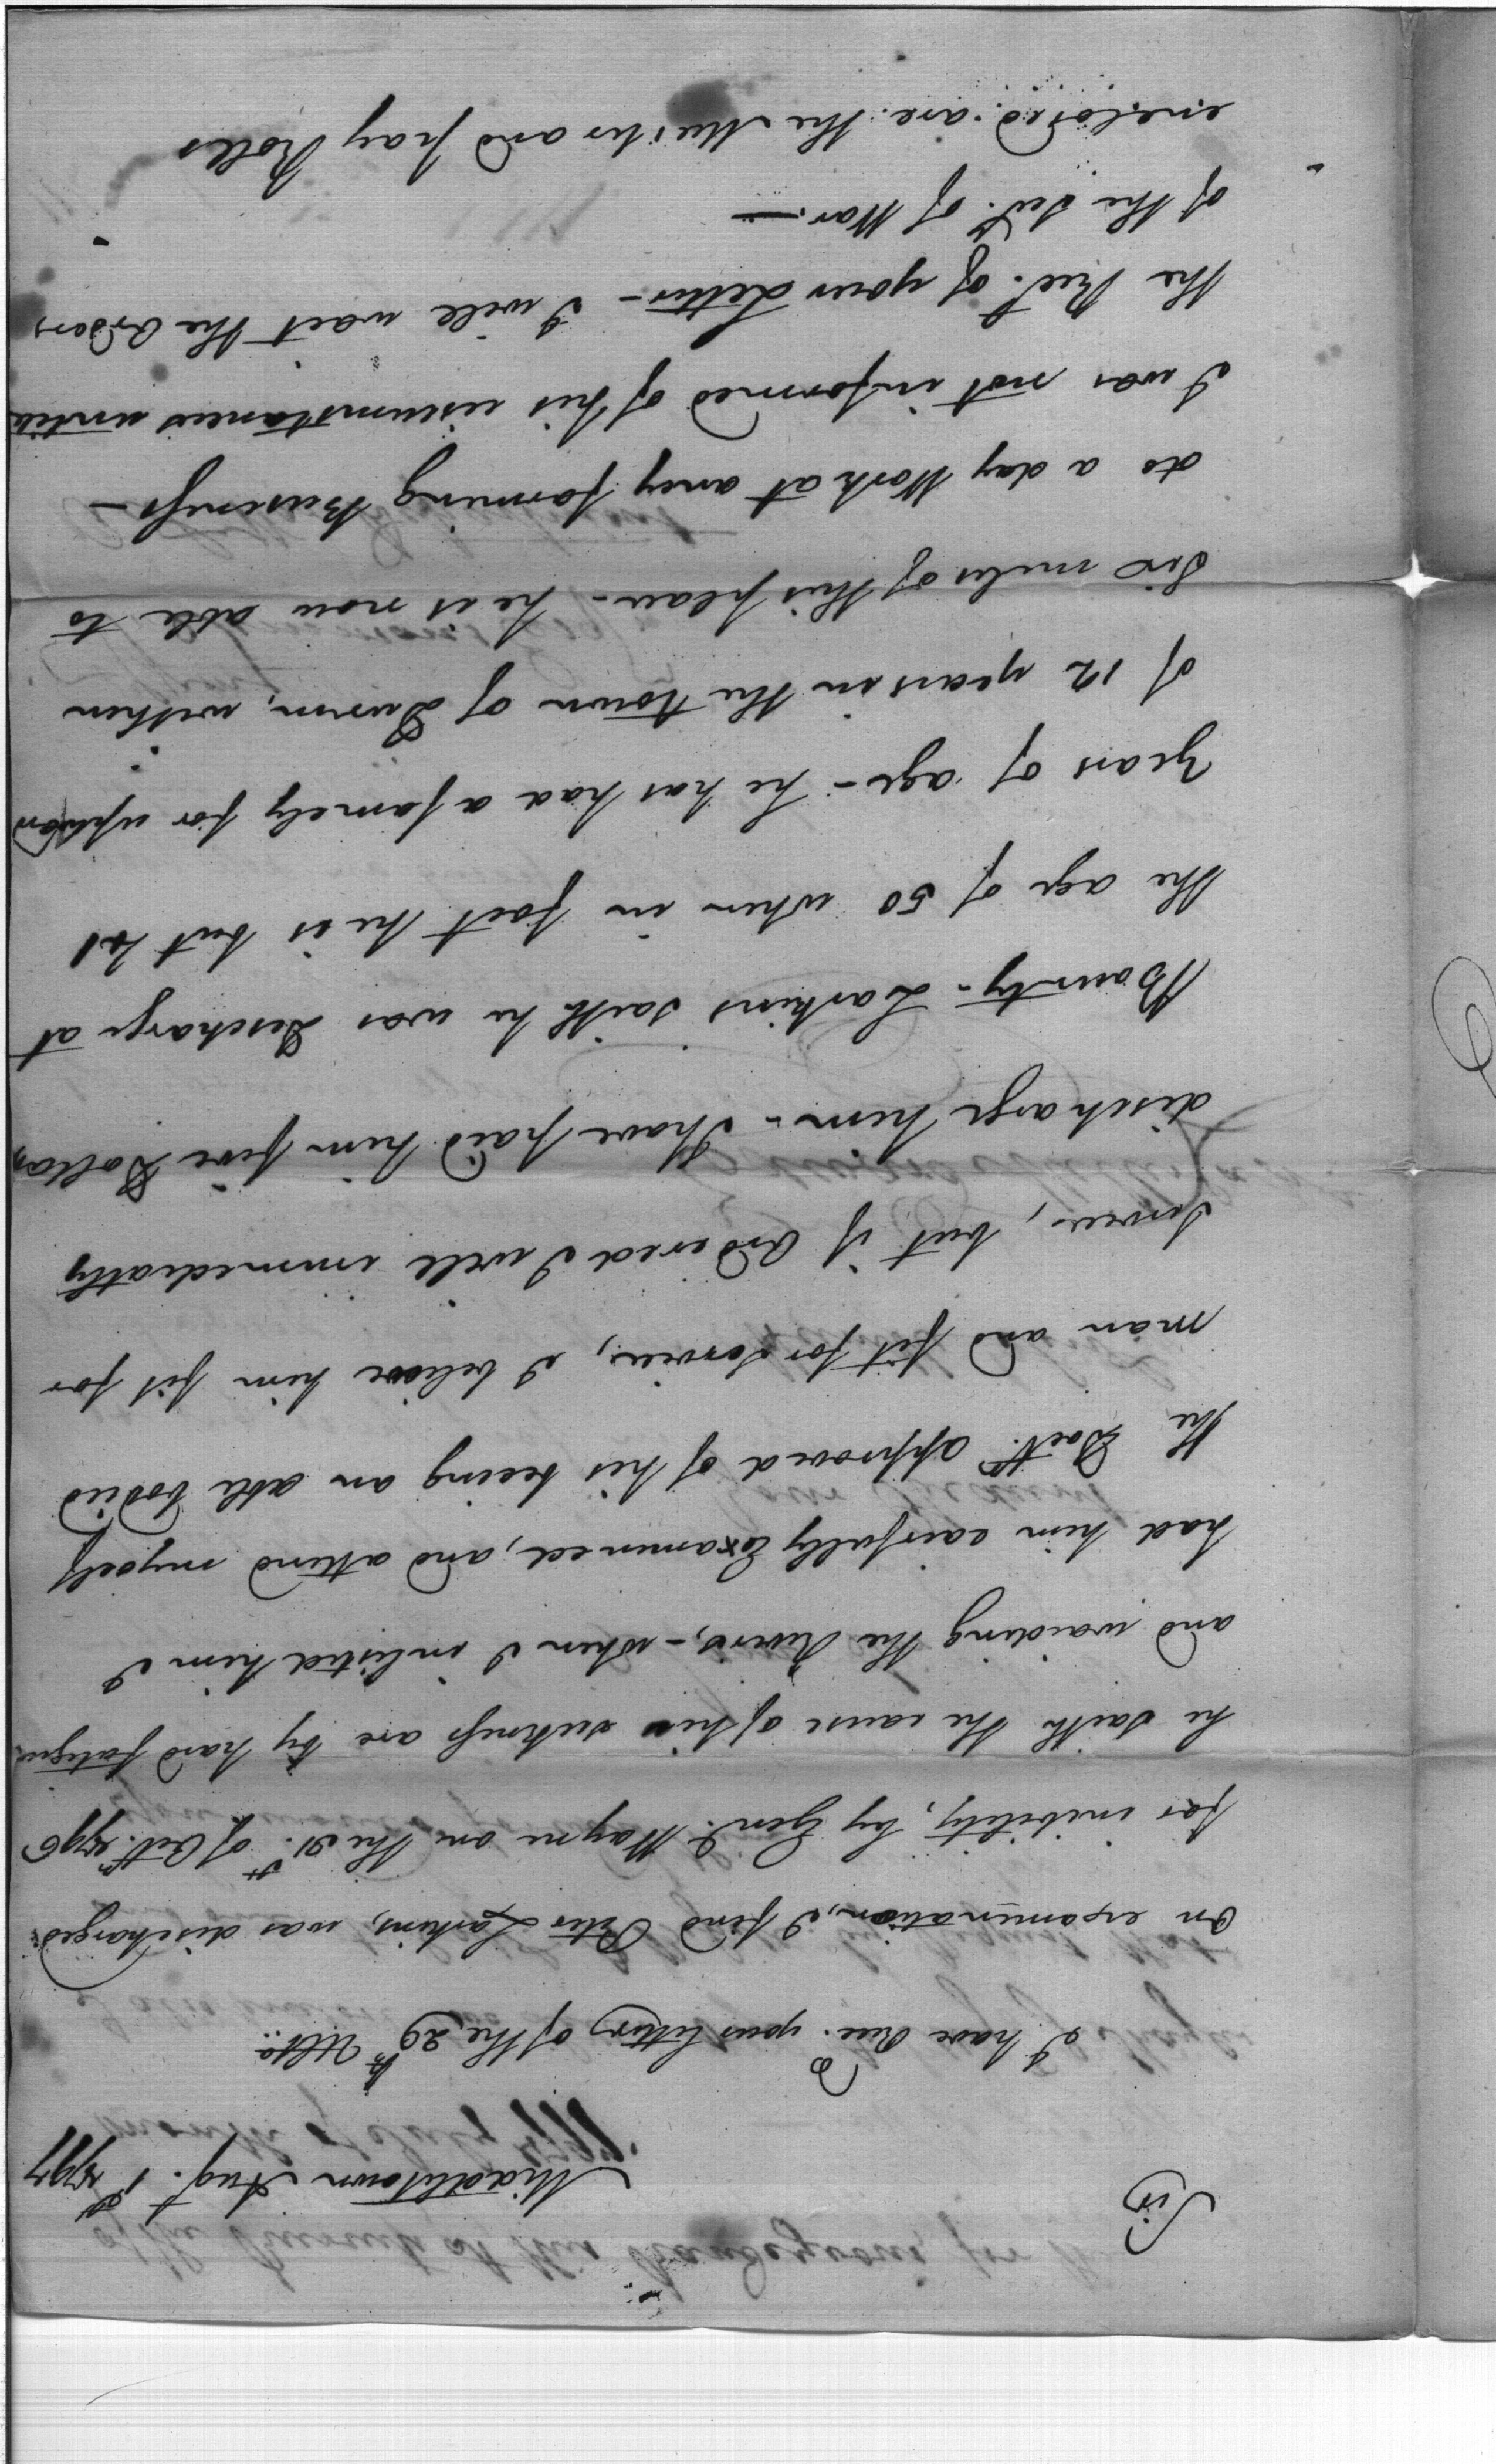 Middletown Aug.t 1st 1797
Sir
I have Rec.d your letter of the 29th Ulto..
On examination, I find Peter Larkins, was discharged
for inibility, by Genl. Wayne on the 31st of Oct.r 1796
he saith the cause of his sickness are by hard fatigue,
and waiding the Rivers, - when I inlisted him I
had him carefully Examined, and attend myself
the Doct.r approved of his being an able bodied
man and fit for service, I believe him fit for
Service, but if Ordered I will immediatly
discharge him - I have paid him five Dollars,
Bounty - Larkins saith he was Discharge at
the age of 50 when in fact he is but 41
Years of age - he has had a famely for upward
of 12 years in the town of Durm, within
Six miles of this place - he is now able to
do a day Work at aney farming Buseness -
I was not informed of his cisumstances untill
the Rec.t of your Letter - I will wait the Orders
of the Sect.y of War. -
enclosed are the Muster and pay Rolls